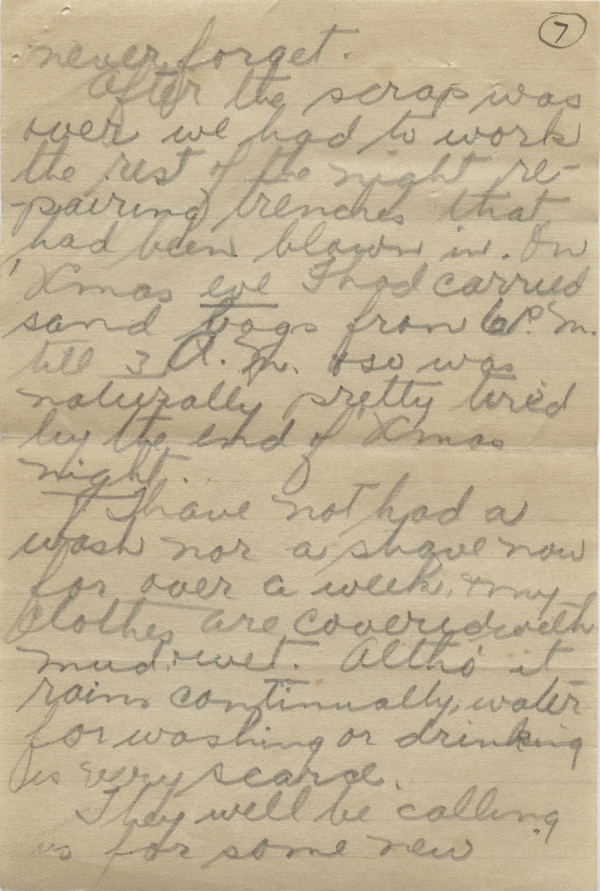 7
never forget.
After the scrap was
over we had to work
the rest of the night re-
-pairing trenches that
had been blown in. On
'Xmas eve I had carried
sand bags from 6 P.M.
till 3 A.M. & so was
naturally pretty tired
by the end of 'Xmas
night.
I have not had a
wash nor a shave now
for over a week, & my
clothes are covered with
mud & wet. Altho' it
rains continually, water
for washing or drinking
is very scarce.
They will be calling
us for some new